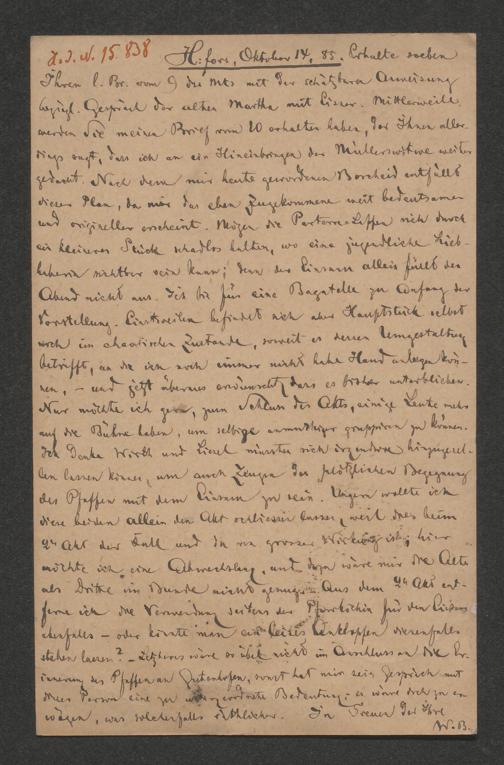 I. J. N. 15.838
H:fors, Oktober 14, 85. Erhalte soeben
Ihren l. Br. vom 9 des Mts mit der schätzbaren Anweisung
bezügl. Gespräch der alten Martha mit Eisner. Mittlerweile
werden Sie meinen Brief vom 10 erhalten haben, der Ihnen aller-
dings sagt, dass ich an ein Hineinbringen der Müllerswitwe weiter
gedacht. Nach dem mir heute gewordenen Bescheid entfällt
dieser Plan, da mir das eben Zugekommene weit bedeutsamer
und origineller erscheint. Mögen die sich durch
ein kleineres Stück schadlos halten, wo eine jugendliche Lieb-
haberin sichtbar sein kann; denn der Einsam allein füllt den
Abend nicht aus. Ich bin für eine Bagatelle zu Anfang der
Vorstellung. Einstweilen befindet sich aber Hauptstück selbst
noch im chaotischen Zustande, soweit es deren Umgestaltung
betrifft, an die ich noch immer nicht habe Hand anlegen kön-
nen, – und jetzt überaus erwünscht, dass es bisher unterblieben.
Nur möchte ich gern, zum Schluss des Akts, einige Leute mehr
auf die Bühne haben, um selbige anmutiger gruppiren zu können.
Der Wirth und Liesel müssten sich irgendwie hinzugesel-
len lassen können, um auch Zeugen der plötzlichen Begegnung
des Pfaffen mit dem Einsam zu sein. Ungern wollte ich
diese beiden allein den Akt schliessen lassen, weil dies beim
2ten Akt der Fall und da von grosser Wirkung ist; hier
möchte ich eine Abwechslung, und dazu wäre mir die Alte
als Dritte im Bunde nicht genug. – Aus dem 2ten Akt ent-
ferne ich die Verwendung seitens der Pfarrköchin für den Einsam
ebenfalls – oder könnte man ein leises Anklopfen diesenfalls
stehen lassen? – wäre es übel nicht im Anschluss an die Er-
innerung des Pfaffen an , sonst hat mir sein Gespräch mit
dieser Person eine zu untergeordnete Bedeutung; es wäre doch zu er-
wägen, was solchenfalls räthlicher. In Treuen der Ihre
W. B.